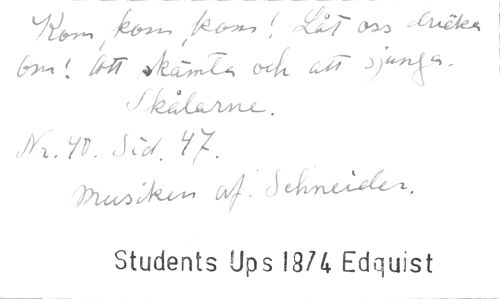 Kom, kom, kom! Låt oss dricka
om! Att skämta och att sjunga.
Skålarne.
Nr. 40. Sid. 47.
Musiken af Schneider.
Students Ups 1874 Edquist